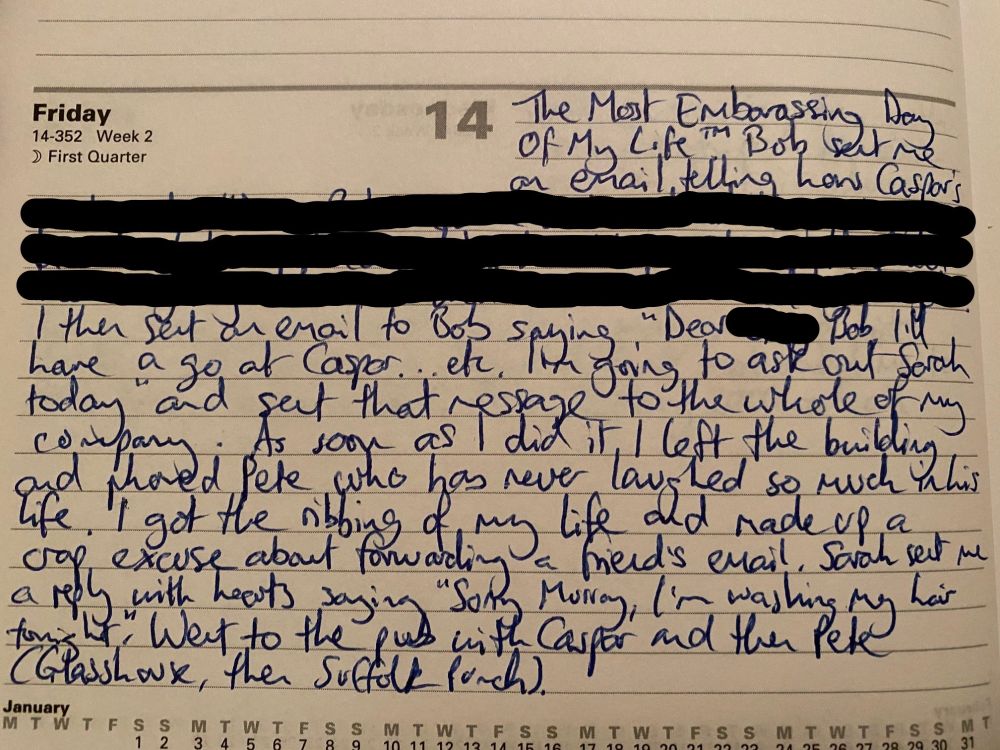 Friday
14-352 Week 2
First Quarter
14
The Most Embarassing Day
Of My Life™ Bob sent me
an email, telling how Caspar's
I then sent an email to Bob saying, "Dear Bob I'll
have a go at Caspar... etc. I'm going to ask out Sarah
today" and sent that message to the whole of my
company. As soon as I did it I left the building
and phoned Pete who has never laughed so much in his
life. I got the ribbing of my life and made up a
crap excuse about forwarding a friend's email. Sarah sent me
a reply with hearts saying "Sorry Murray, I'm washing my hair
tonight". Went to the pub with Caspar and then Pete
(Glasshouse, then Suffolk Punch).
January
M T W T F S S M T W T F S S M T W T F S S M T W T F S S M T W T F S S M T
1 2 3 4 5 6 7 8 9 10 11 12 13 14 15 16 17 18 19 20 21 22 23 24 25 26 27 28 29 30 31